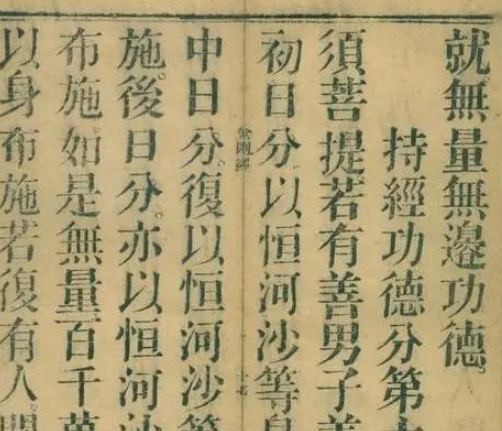 就無量無邊功德。
持經功德分第十
須菩提若有善男子善
初日分以恒河沙等身
中日分。復以恒河沙等
施。後日分。亦以恒河沙
布施。如是無量百千萬
以身布施若復有人。聞